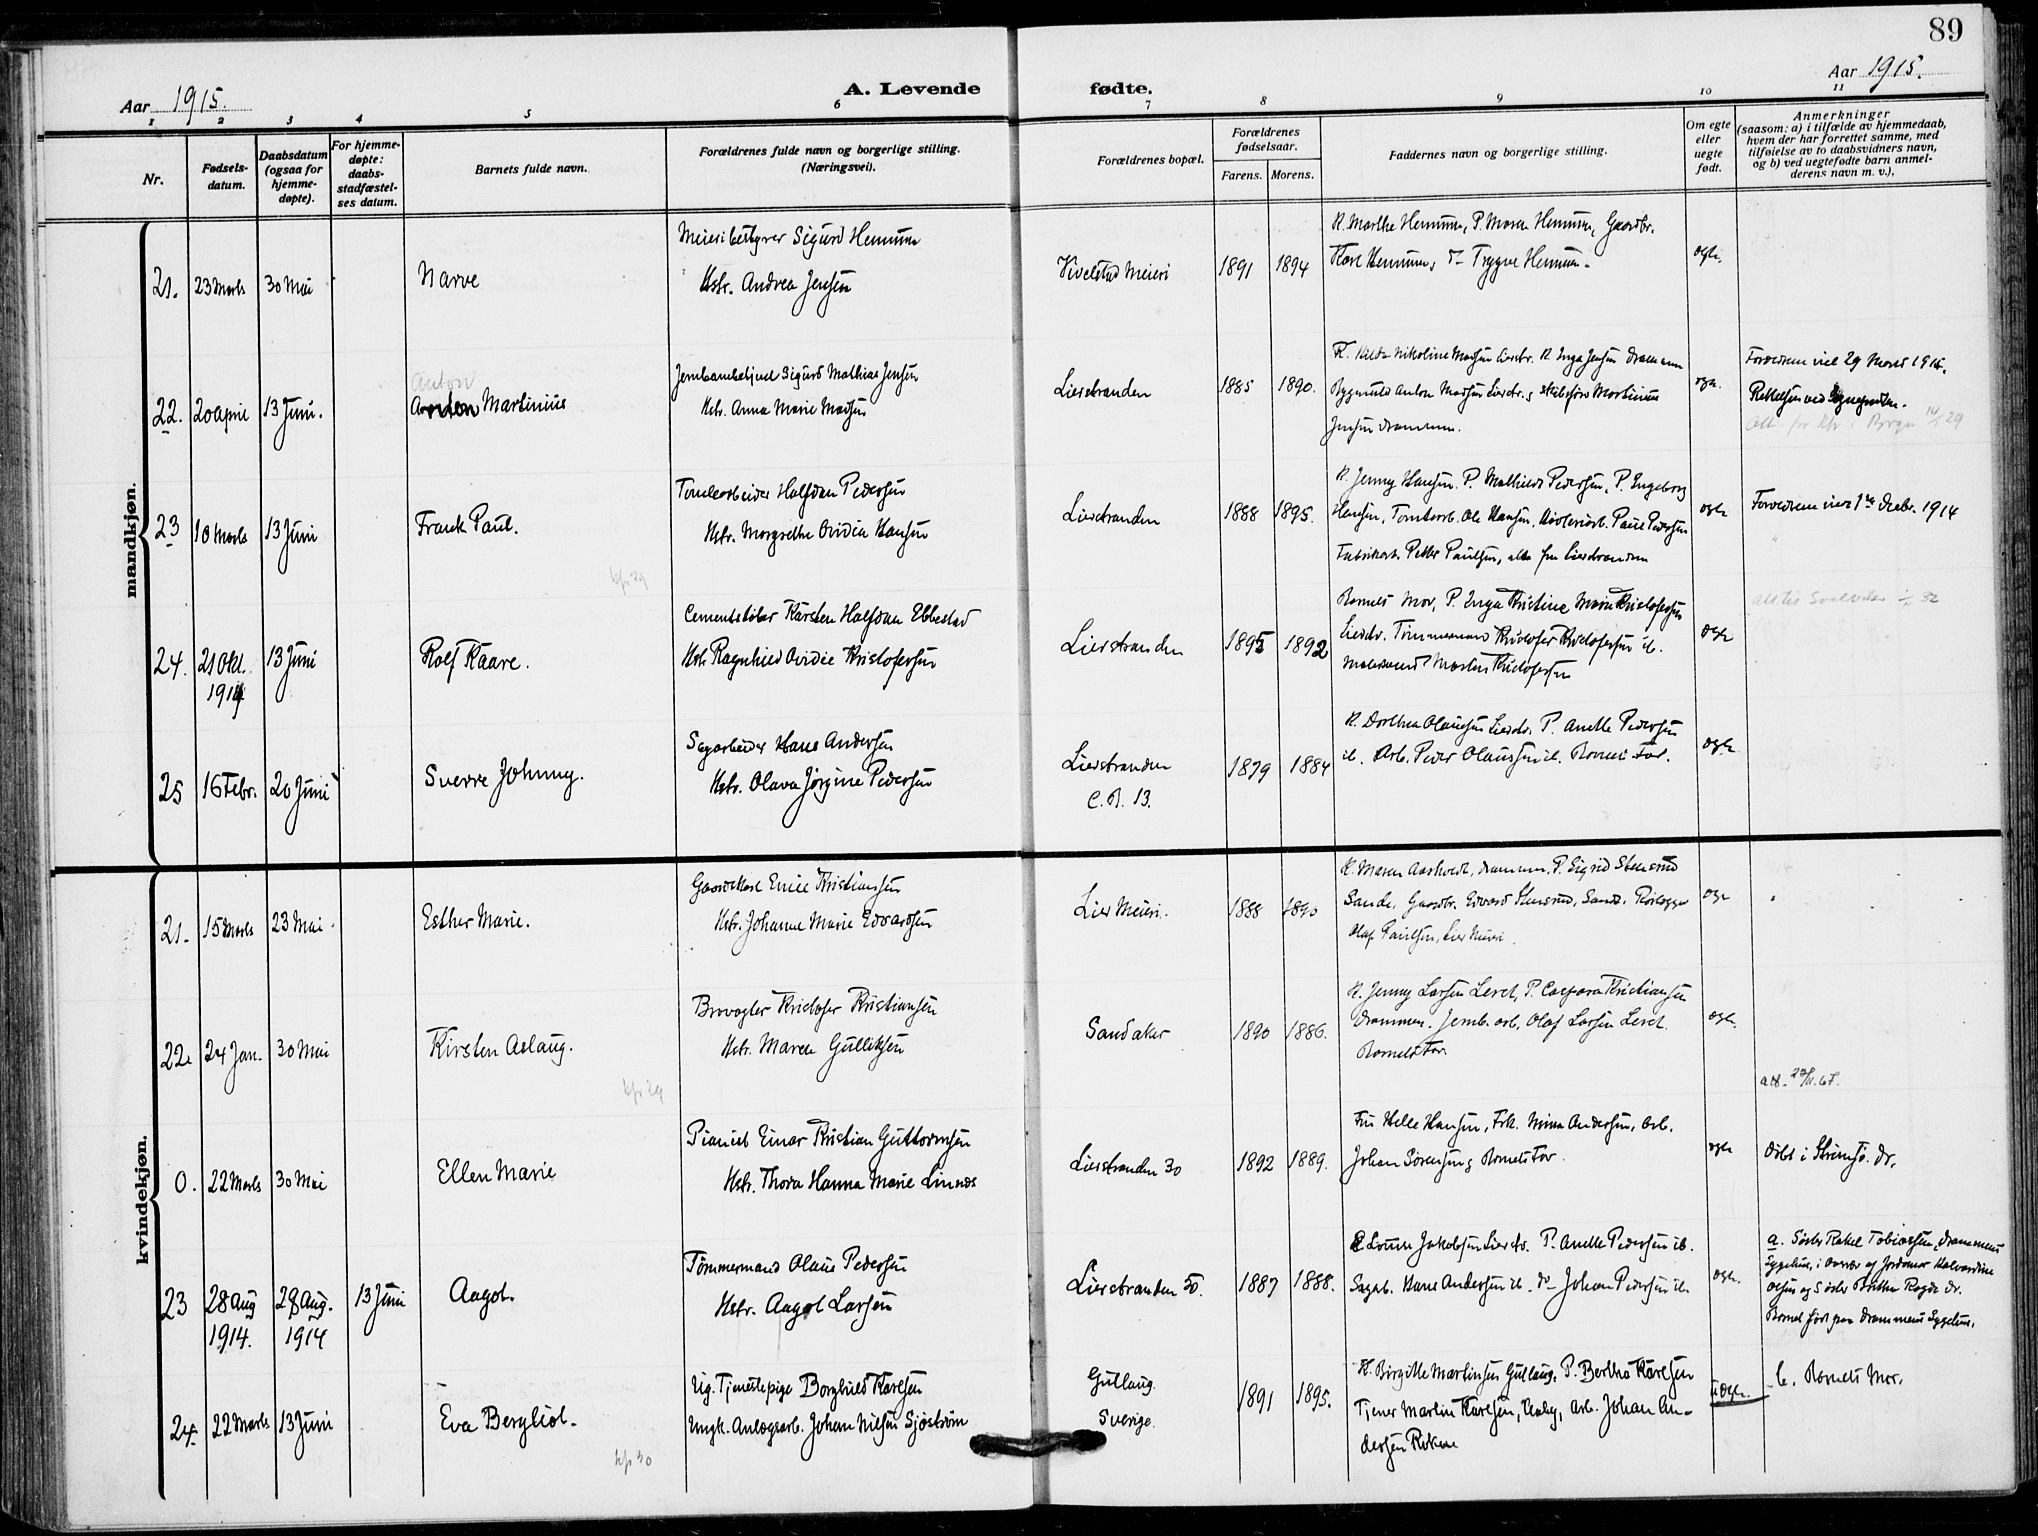 89
Aar 1915.
A. Levende fødte.
Aar 1915.
1 2 3 4 5 6 7 8 9 10 11
Nr.
Fødsels-
datum.
Daabsdatum
(ogsaa for
hjemme-
døpte).
For hjemme-
døpte:
daabs-
stadfæstel-
ses datum.
Barnets fulde navn.
Forældrenes fulde navn og borgerlige stilling.
(Næringsvei).
Forældrenes bopæl.
Forældrenes
fødselsaar.
Farens. Morens.
Faddernes navn og borgerlige stilling.
Om egte
eller
uegte
født.
Anmerkninger
(saasom: a) i tilfælde av hjemmedaab,
hvem der har forrettet samme, med
tilføielse av to daabsvidners navn,
og b) ved uegtefødte barn anmel-
derens navn m. v.).
mandkjøn.
21. 23 Marts 30 Mai Narve
Meieribestyrer Sigurd Hennum
Hstr. Andrea Jensen
Kivelstad Meieri 1891 1894
K. Marthe Hennum, P. Maren Hennum, Gaardbr.
Karl Hennum, do Trygve Hennum.
egte.
22. 20 April 13 Juni.
Anton
Martinius
Jernbanebetjent Sigurd Mathias Jensen
Hstr. Anna Marie Madsen
Lierstranden 1885 1890.
K. Hilda Nikoline Madsen Lierstr. K. Inga Jensen Drammen
Anton Madsen Lierstr., Martinius
Jensen Drammen.
egte.
Forældrene viet 29 Marts 1915.
14/ 29
23 10 Marts 13 Juni Frank Paul.
Tomtearbeider Halfdan Pedersen
Hstr. Margrethe Ovidia Hansen
Lierstranden 1888 1895.
K. Jenny Hansen. P. Mathilde Pedersen, P. Ingeborg
Hansen, Tomtearb. Ole Hansen, Paul Pedersen
Fabrikarb. Petter Paulsen, alle fra Lierstranden
egte
Forældrene viet 1ste Decbr. 1914
kfr 29
24. 21 Okt. 13 Juni Rolf Kaare.
1914
Cementstøber Karsten Halfdan Ebbestad
Hstr. Ragnhild Ovidie Kristofersen
Lierstranden 1895 1892
Barnets Mor, P. Inga Kristine Marie Kristofersen
Lierstr. Tømmermand Kristofer Kristofersen ib.
Morten Kristofersen
egte
32
25 16 Febr. 20 Juni Sverre Johnny.
Sagarbeider Hans Andersen
Hstr. Olava Jørgine Pedersen
Lierstranden 1879 1884
C. R. 13.
K. Dorthea Olaussen Lierstr. P. Anette Pedersen
ib. Arb. Peder Olaussen ib. Barnets Far.
egte
kvindekjøn.
21. 15 Marts 23 Mai. Esther Marie.
Gaardskarl Emil Kristiansen
Hstr. Johanne Marie Edvardsen
Lier Meieri. 1888 1890
K. Maren Aasholdt, Drammen, P. Sigrid Stensrud
Sande, Gaardbr. Edvard Stensrud, Sande,
Olaf Paulsen, Lier Meieri.
egte
22. 24 Jan. 30 Mai Kirsten Aslaug.
Brovogter Kristofer Kristiansen
Hstr. Maren Gulliksen
Sandaker 1890 1886.
K. Jenny Larsen Leret, P. Caspara Kristiansen
Drammen. Jernb. arb. Olaf Larsen Leret.
Barnets Far
egte.
kfr 29
0. 22 Marts 30 Mai Ellen Marie
Pianist Einar Kristian Guttormsen
Hstr. Thora Hanna Marie Linnes
Lierstranden 30 1892 1889.
Fru Helle Hansen, Frk. Mina Andersen, Arb.
Johan Sørensen, Barnets Far.
egte
Døbt i Strømsø. Dr.
23 28 Aug 28 Aug. 13 Juni Aagot.
1914. 1914
Tømmermand Olaus Pedersen
Hstr. Aagot Larsen
Lierstranden 50. 1887 1888.
Jakobsen Lierstr. P. Anette Pedersen ib.
Sagarb. Hans Andersen ib. do Johan Pedersen ib.
egte.
a. Søster Rakel Tobiassen, Drammens
Sygehus, i nærvær af Jordmor Halvardine
Olsen og Søster Rogde Dr.
Barnet født paa Drammens Sygehus.
24. 22 Marts 13 Juni Eva Bergliot.
Ug. Tjenestepige Borghild Karlsen
Ungk. Anlægsarb. Johan Nilsen Sjøstrøm
Gullaug.
Sverige.
1891 1895.
K. Birgitte Martinsen Gullaug, P. Bertha Karlsen
Tjener Martin Karlsen, Arb. Johan An-
dersen Røken
uegte.
b. Barnets Mor.
kfr 30